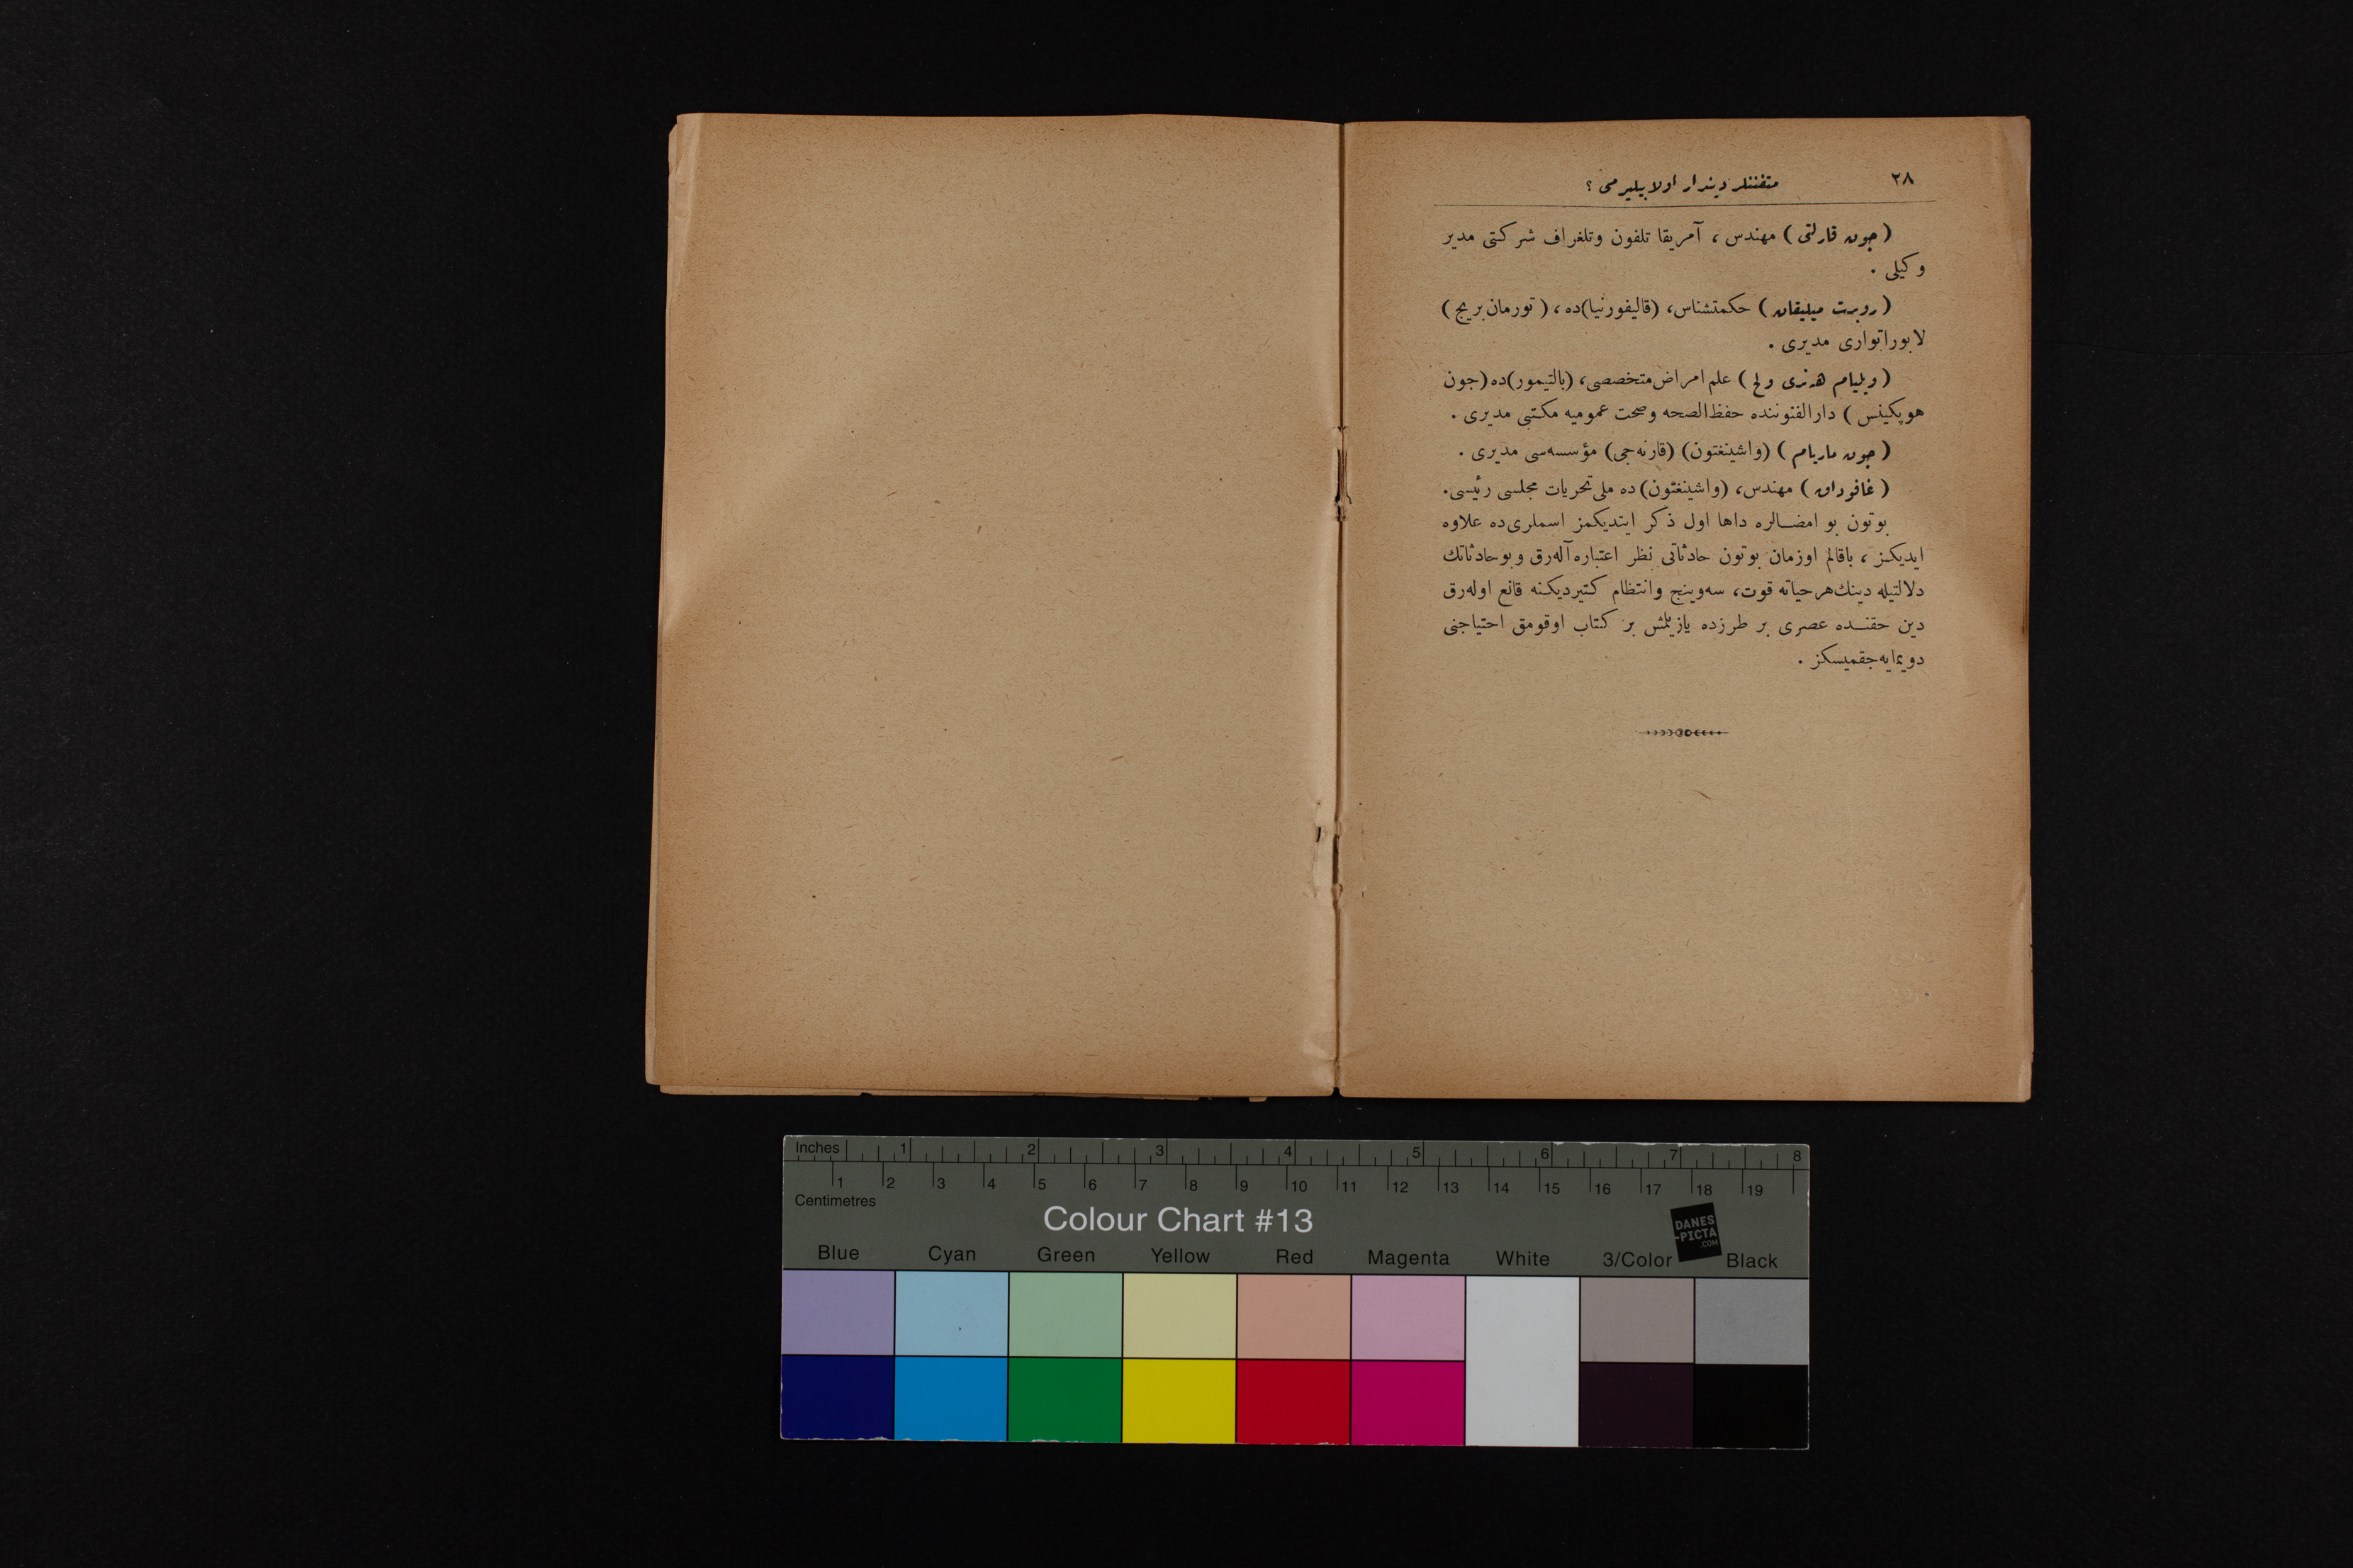 ٢٨
متفننلر دیندار اولابیلیرمی ؟
( جون قارلتی ) مهندس ، آمریقا تلفون وتلغراف شرکتی مدیر
وکیلی .
( روبرت میلیقان ) حکمتشناس، (قالیفورنیا)ده ، ( تورمان بریج )
لابوراتواری مدیری .
( ویلیام هنری ولچ ) علم امراض متخصصی، (بالتیمور)ده (جون
هوپکینس ) دارالفنوننده حفظ‌الصحه وصحت عمومیه مکتبی مدیری .
( جون ماریام ) (واشینغتون) (قارنه‌جی) مؤسسه‌سی مدیری .
( غافودان ) مهندس، (واشینغتون) ده ملی تحریات مجلسی رئیسی.
بوتون بو امضالره داها اول ذکر ایتدیکمز اسملری‌ده علاوه
ایدیکز ، باقالم اوزمان بوتون حادثاتی نظر اعتباره آله‌رق وبوحادثاتك
دلالتیله دینك هرحیاته قوت، سه‌وینج وانتظام کتیردیکنه قانع اوله‌رق
دین حقنده عصری بر طرزده یازیلمش بر کتاب اوقومق احتیاجنی
دویمایه‌جقمیسکز .
Inches 1 2 3 4 5 6 7 8
1 2 3 4 5 6 7 8 9 10 11 12 13 14 15 16 17 18 19
Centimetres
Colour Chart #13
DANES
-PICTA
.COM
Blue Cyan Green Yellow Red Magenta White 3/Color Black